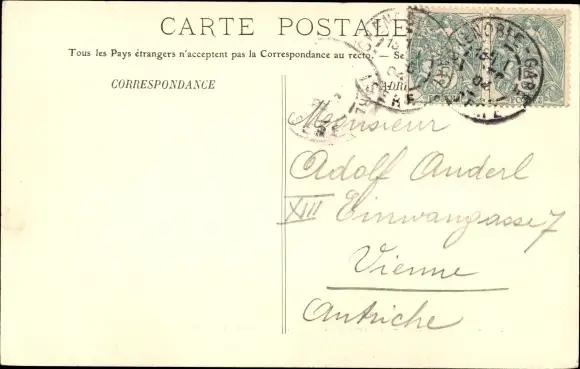 CARTE POSTALE
Tous les Pays étrangers n'acceptent pas la Correspondance au recto. — Se
CORRESPONDANCE
ADR
GRENOBLE - GARE
Monsieur
Adolf Anderl
XIII Einwangasse 7
Vienne
Autriche